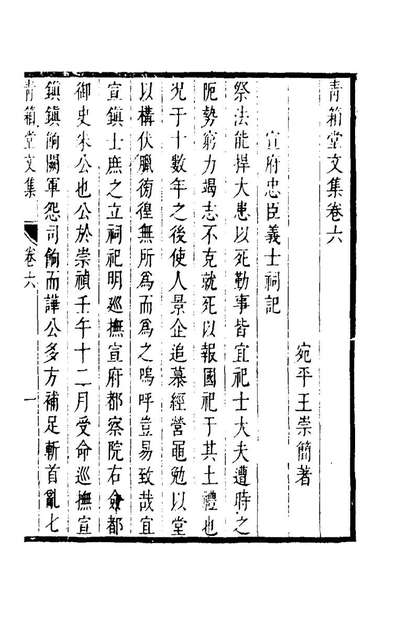 青箱堂文集卷六
宛平王崇簡著
宣府忠臣義士祠記
祭法能捍大患以死勤事皆宜祀士大夫遭時之
阨勢窮力竭志不克就死以報國祀于其土禮也
況于十數年之後使人景企追慕經營黽勉以堂
以構伏臘衖徨無所為而為之嗚呼豈易致哉宜
宣鎮士庶之立祠祀明巡撫宣府都察院右僉都
御史朱公也公於崇禎壬午十二月受命巡撫宣
鎮鎮餉闕軍怨司餉而譁公多方補足斬首亂七
青箱堂文集
卷六
一